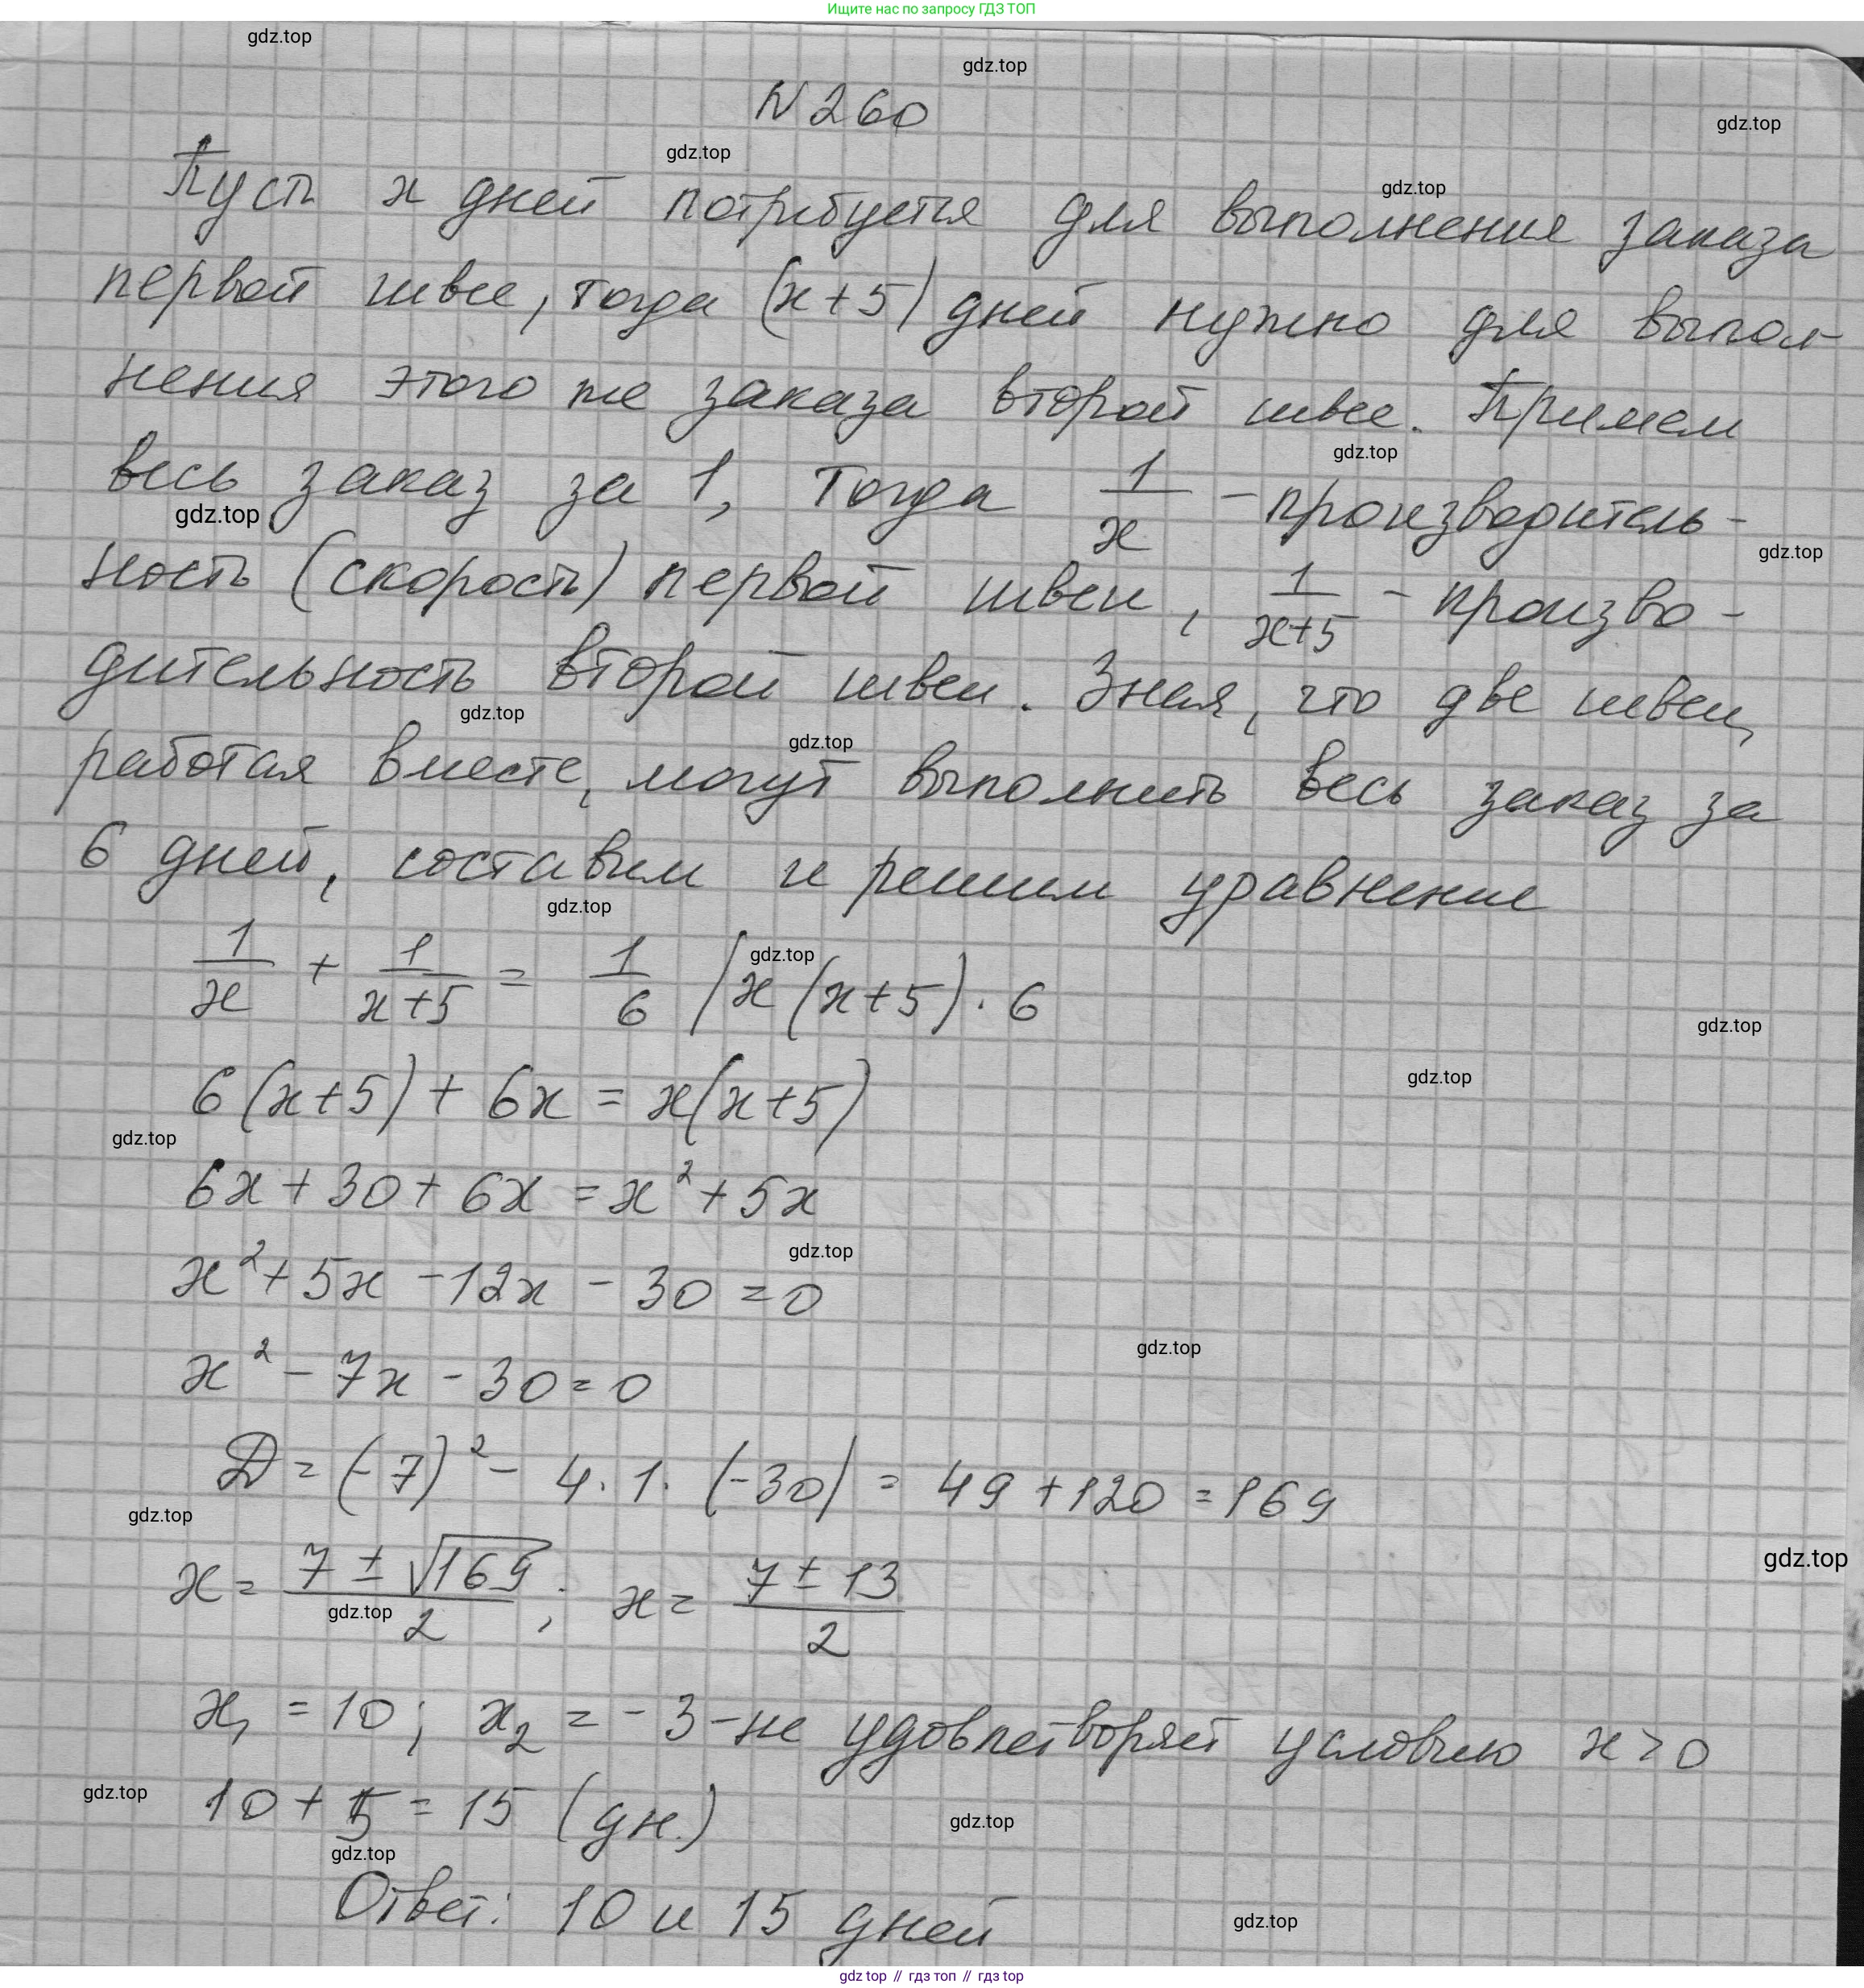 Ищите нас по запросу ГДЗ ТОП
gdz.top
gdz.top
N 260
gdz.top
gdz.top
Пусть x дней потребуется для выполнения заказа
gdz.top
первой швее, тогда (x+5) дней нужно для выпол-
нения этого же заказа второй швее. Примем
gdz.top
весь заказ за 1, тогда 1/x - производитель-
gdz.top
gdz.top
ность (скорость) первой швеи, 1/(x+5) - произво-
дительность второй швеи. Зная, что две швеи,
gdz.top
gdz.top
работая вместе, могут выполнить весь заказ за
6 дней, составим и решим уравнение
gdz.top
gdz.top
1/x + 1/(x+5) = 1/6 | x(x+5)·6
gdz.top
gdz.top
6(x+5) + 6x = x(x+5)
gdz.top
6x + 30 + 6x = x² + 5x
gdz.top
x² + 5x - 12x - 30 = 0
gdz.top
x² - 7x - 30 = 0
D = (-7)² - 4·1·(-30) = 49 + 120 = 169
gdz.top
gdz.top
x = (7 ± √169)/2; x = (7 ± 13)/2
gdz.top
x₁ = 10; x₂ = -3 - не удовлетворяет условию x > 0
gdz.top
10 + 5 = 15 (дн.)
gdz.top
gdz.top
Ответ: 10 и 15 дней
gdz.top
gdz top // гдз топ // гдз top